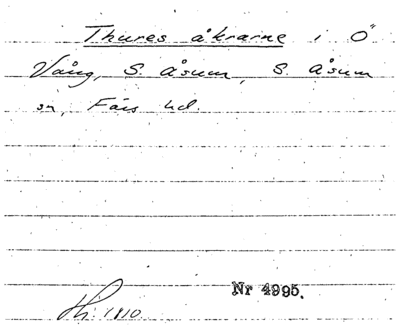 Thures åkrarne i Ö
Vång, S. Åsum, S. Åsum
sn, Färs hd.
Nr 4995.
1810